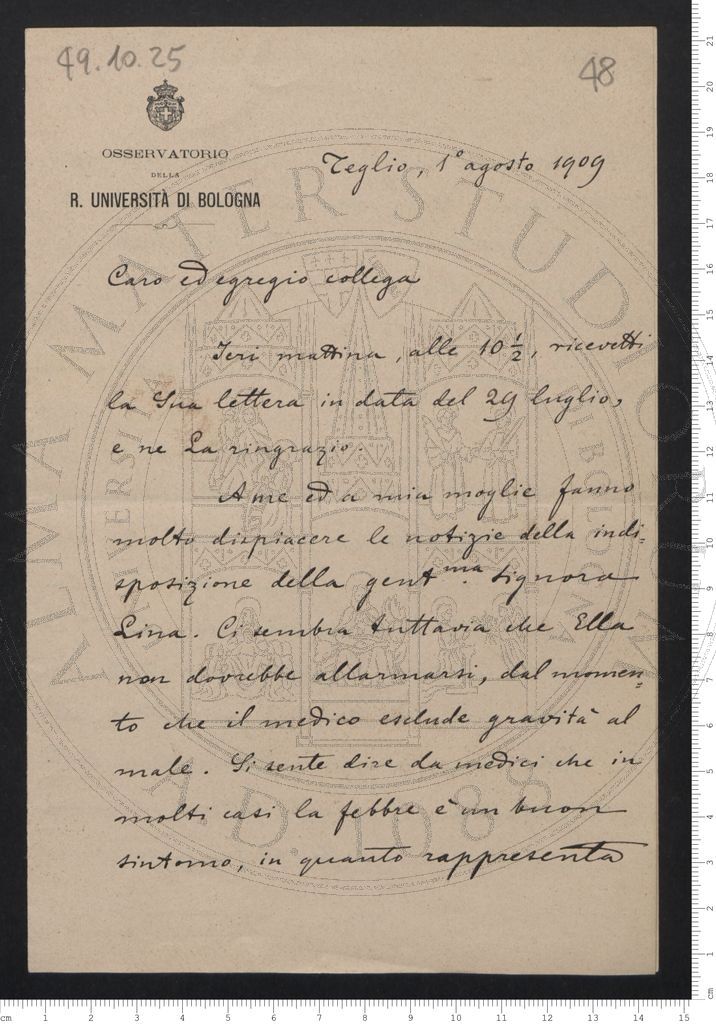 49.10.25
48
OSSERVATORIO
DELLA
R. UNIVERSITÀ DI BOLOGNA
Teglio, 1° agosto 1909
Caro ed egregio collega
Ieri mattina, alle 10 1/2, ricevetti
la Sua lettera in data del 29 luglio,
e ne La ringrazio.
A me ed a mia moglie fanno
molto dispiacere le notizie della indi=
sposizione della gent.ma signora
Lina. Ci sembra tuttavia che Ella
non dovrebbe allarmarsi, dal momen=
to che il medico esclude gravità al
male. Si sente dire da medici che in
molti casi la febbre è un buon
sintomo, in quanto rappresenta
ALMA MATER STUDIORUM
UNIVERSITÀ DI BOLOGNA
A.D. 1088